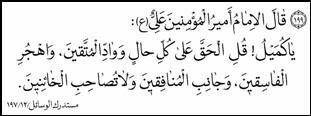 (١٩٩) قَالَ الإِمَامُ أَمِيرُ الْمُؤْمِنِينَ عَلِيٌّ (ع):
يَا كُمَيْلُ! قُلِ الْحَقَّ عَلَىٰ كُلِّ حَالٍ وَوَادِّ الْمُتَّقِينَ، وَاهْجُرِ
الْفَاسِقِينَ، وَجَانِبِ الْمُنَافِقِينَ وَلَا تُصَاحِبِ الْخَائِنِينَ.
مستدرك الوسائل/١٢/١٩٧